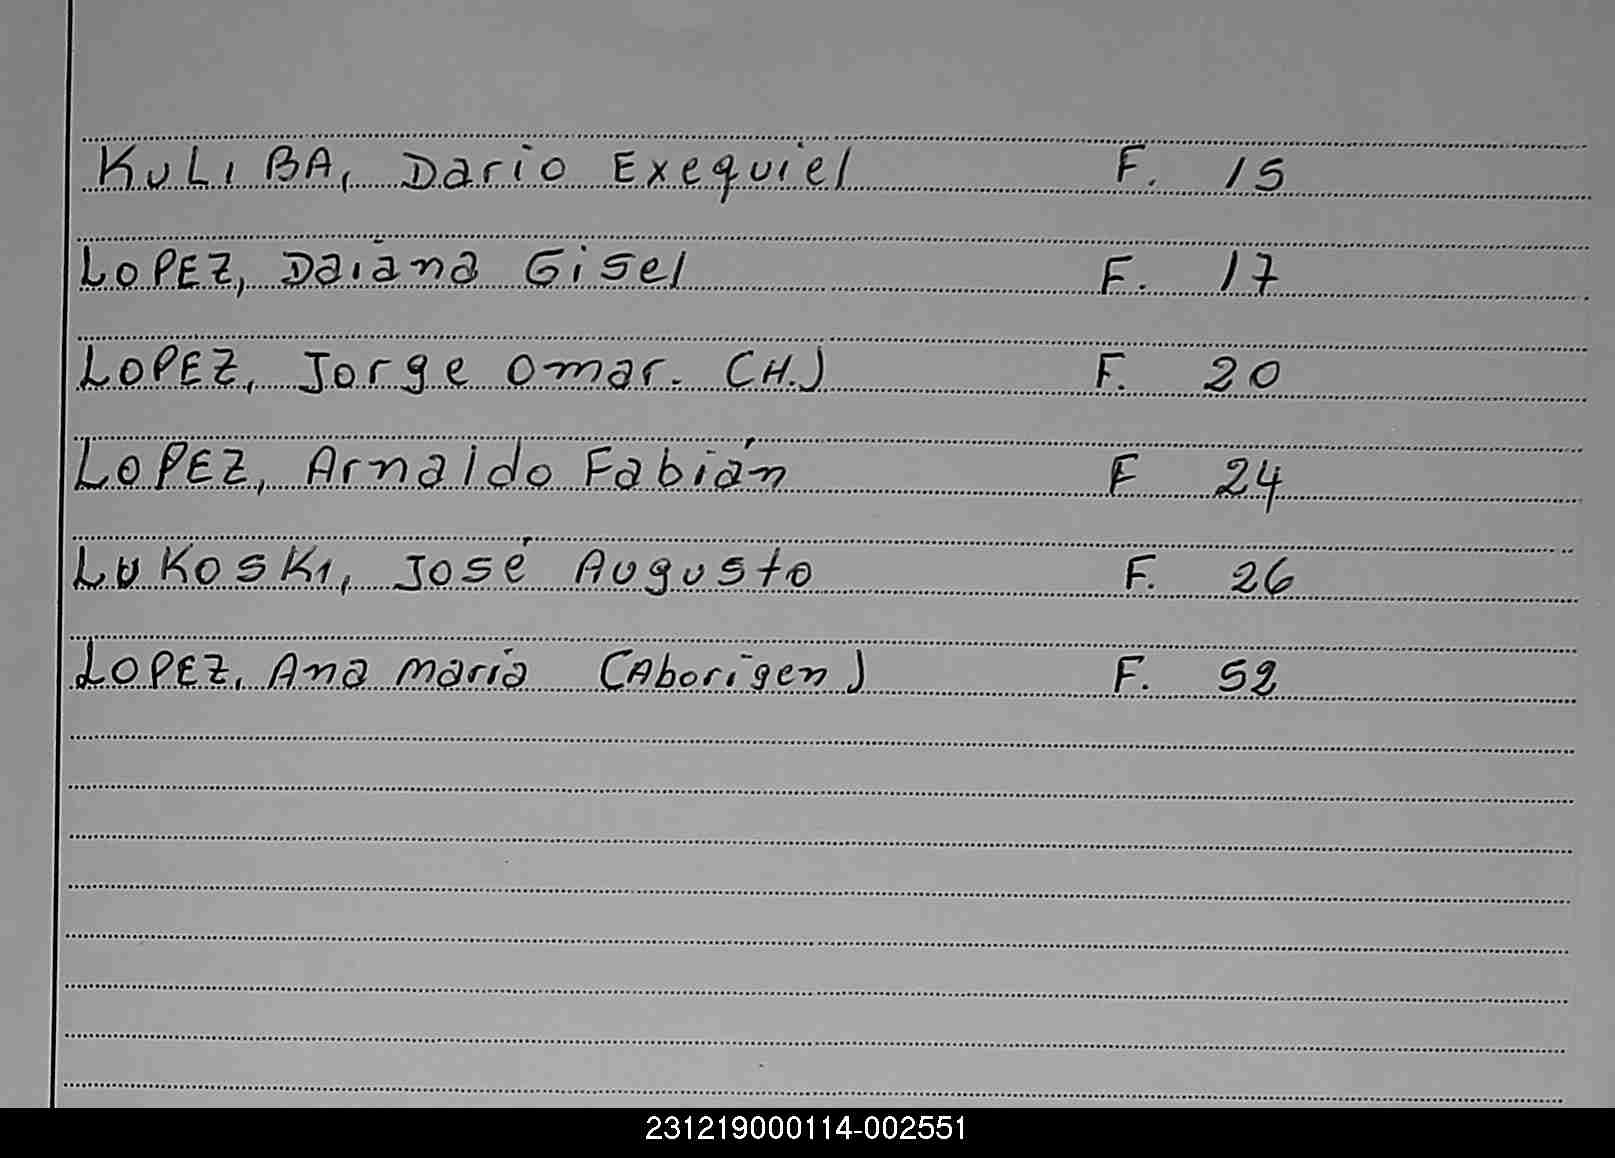 KULIBA, Dario Exequiel F. 15
LOPEZ, Daiana Gisel F. 17
LOPEZ, Jorge Omar. (H.) F. 20
LOPEZ, Arnaldo Fabián F 24
LUKOSKI, José Augusto F. 26
LOPEZ, Ana maria (Aborigen) F. 52
231219000114-002551